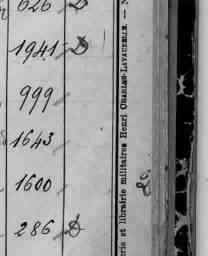 626 D
1941 D
999
1643
1600
286 D
rie et librairie militaires Henri CHARLES-LAVAUZELLE. —